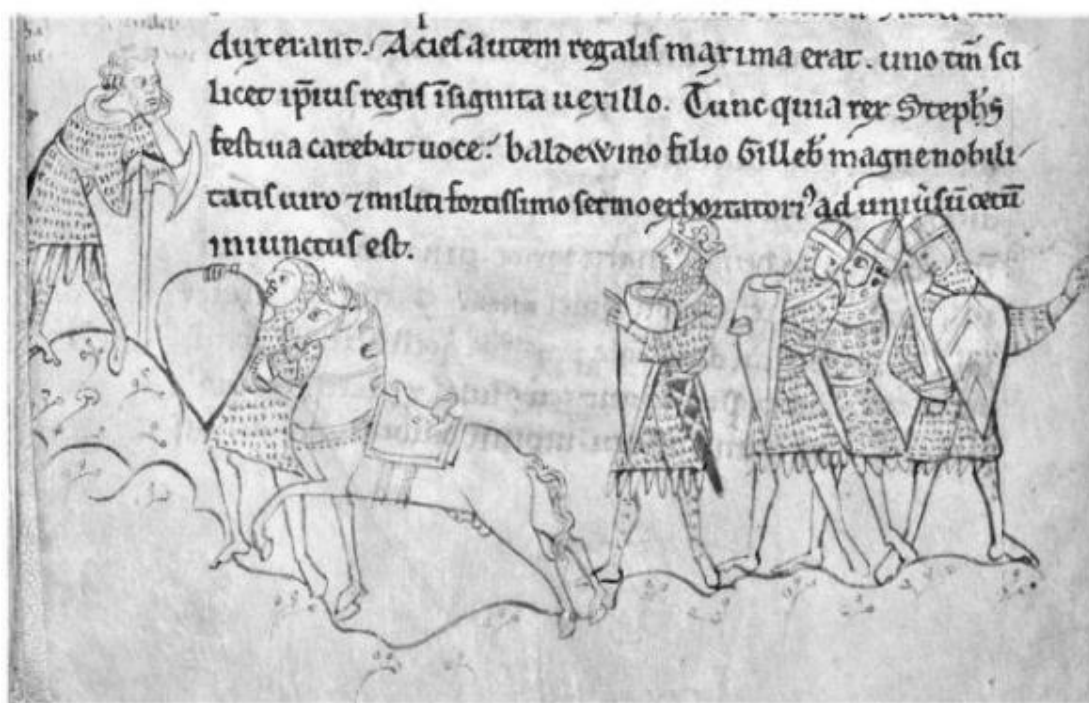 duxerant. Acies autem regalis maxima erat. uno tm̄ sci
licet ip̄ius regis īsignita uexillo. Tunc quia rex Steph̄s
festiua carebat uoce: baldewino filio Gilleb̄ magne nobili
tatis uiro ⁊ militi fortissimo sermo exhortatori᾽ ad uniūsū cetū
iniunctus est.